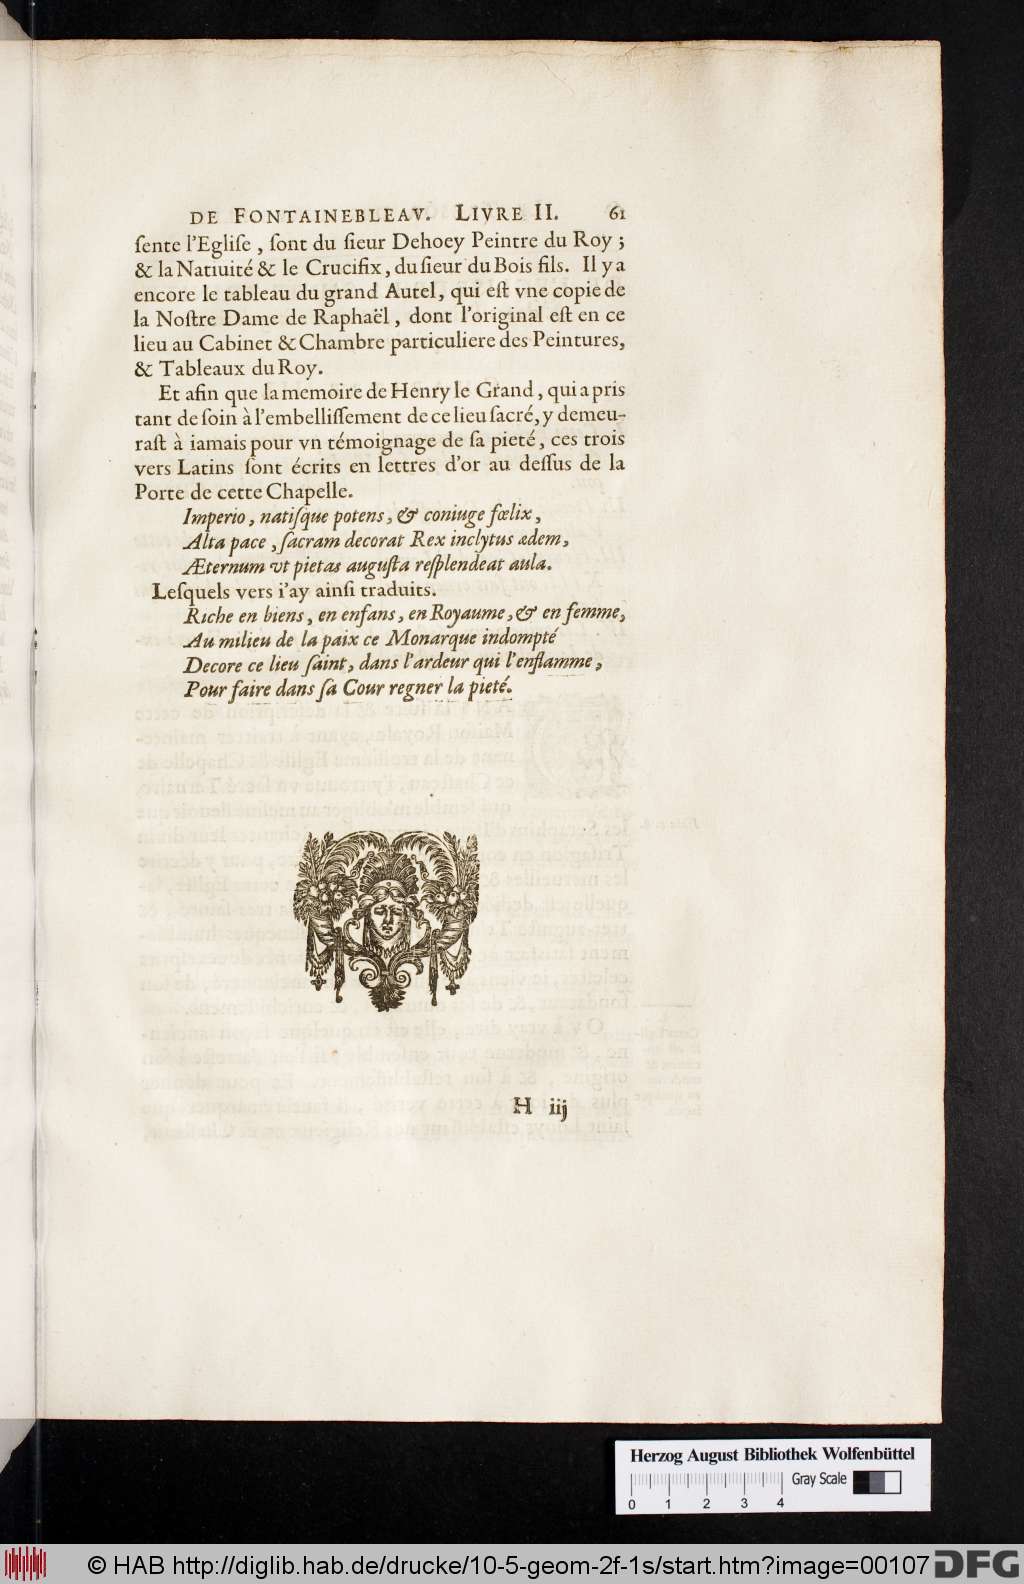 DE FONTAINEBLEAV. LIVRE II. 61
ſente l'Egliſe, ſont du ſieur Dehoey Peintre du Roy;
& la Natiuité & le Crucifix, du ſieur du Bois fils. Il y a
encore le tableau du grand Autel, qui eſt vne copie de
la Noſtre Dame de Raphaël, dont l'original eſt en ce
lieu au Cabinet & Chambre particuliere des Peintures,
& Tableaux du Roy.
Et afin que la memoire de Henry le Grand, qui a pris
tant de ſoin à l'embelliſſement de ce lieu ſacré, y demeu-
raſt à iamais pour vn témoignage de ſa pieté, ces trois
vers Latins ſont écrits en lettres d'or au deſſus de la
Porte de cette Chapelle.
Imperio, natiſque potens, & coniuge fœlix,
Alta pace, ſacram decorat Rex inclytus ædem,
Æternum vt pietas auguſta reſplendeat aula.
Leſquels vers i'ay ainſi traduits.
Riche en biens, en enfans, en Royaume, & en femme,
Au milieu de la paix ce Monarque indompté
Decore ce lieu ſaint, dans l'ardeur qui l'enflamme,
Pour faire dans ſa Cour regner la pieté.
H iij
Herzog August Bibliothek Wolfenbüttel
Gray Scale
0 1 2 3 4
© HAB http://diglib.hab.de/drucke/10-5-geom-2f-1s/start.htm?image=00107
DFG